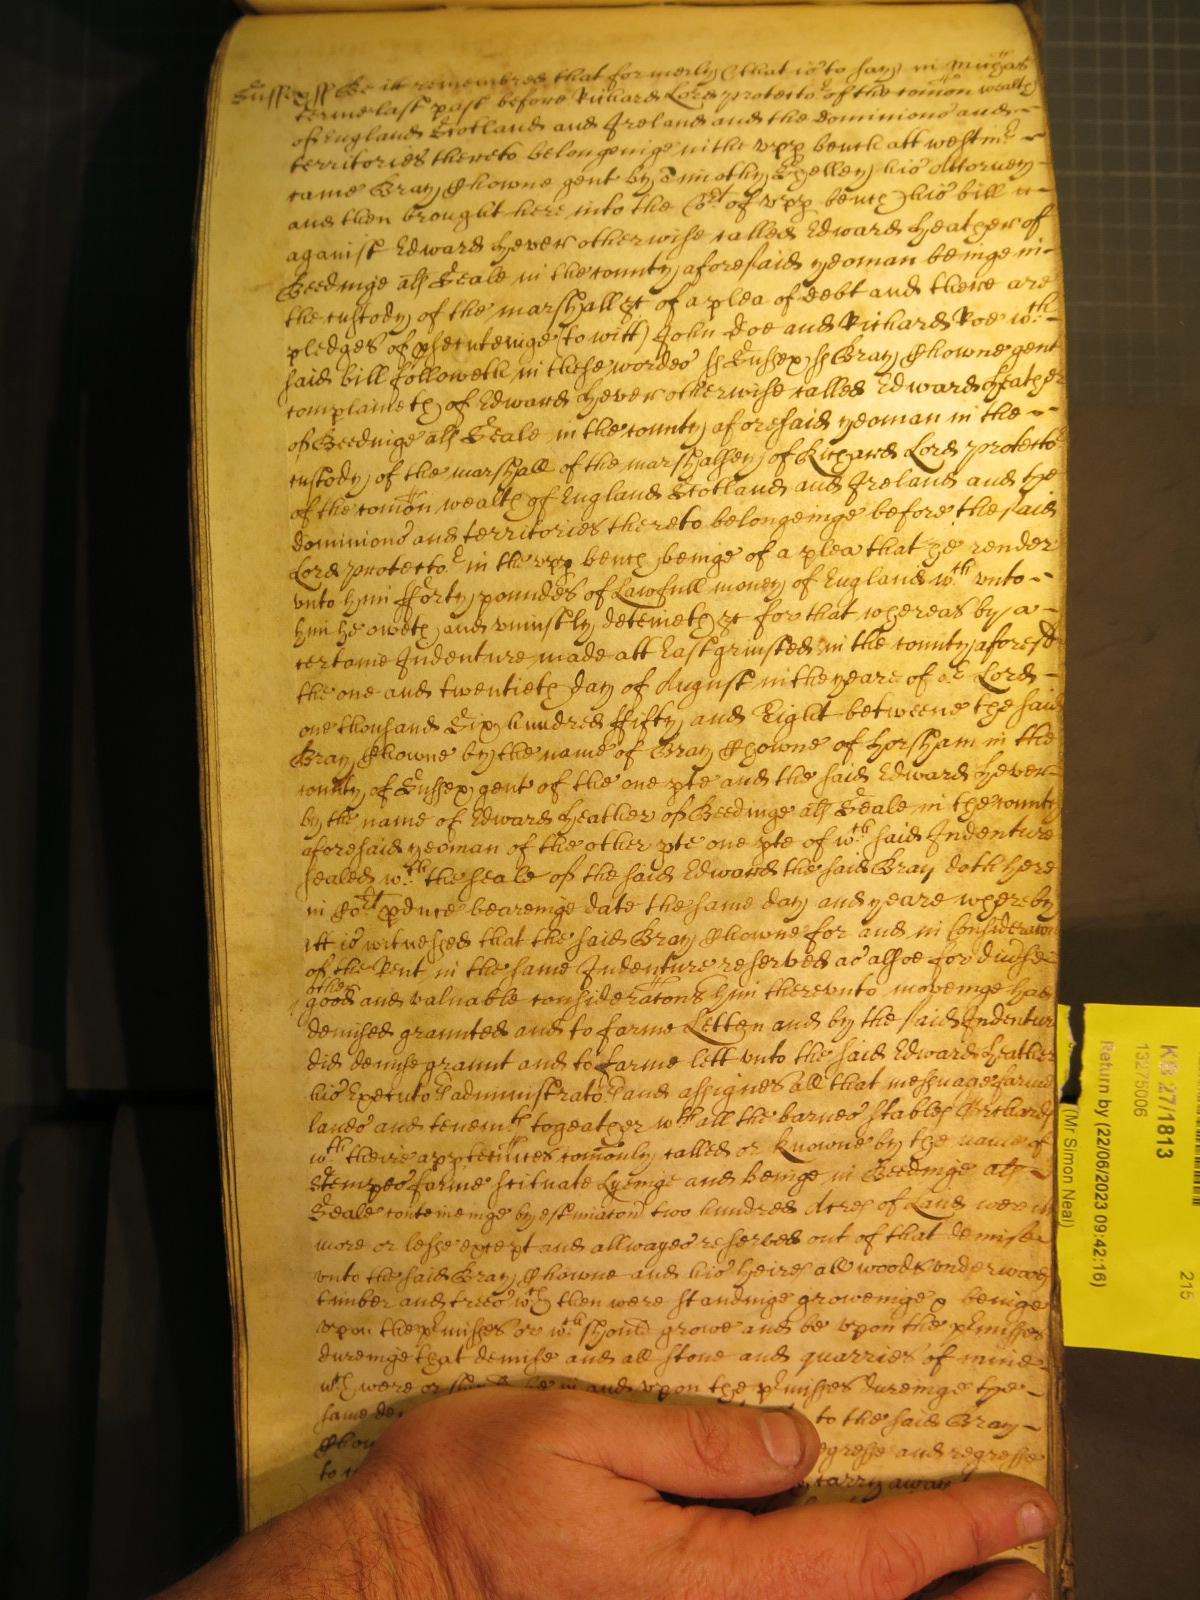 Sussex ss Be itt remembred that formerly (that is to say) in Mich̄as
terme last past before Richard Lord protector of the com̄on wealth
of England Scotland and Ireland and the dominions and
territories thereto belongeinge in the vpp bench att westmr
came Bray Chowne gent by Timothy Shelley his Attorney
and then brought here into the Cort of vpp bench his bill
against Edward Hever otherwise called Edward Heather of
Beedinge als Seale in the county aforesaid yeoman beinge in
the custody of the marshall &c of a plea of debt and there are
pledges of psecuteinge (to witt) John Doe and Richard Roe wch
said bill followeth in these wordes ss Sussex ss Bray Chowne gent
complaineth of Edward Hever otherwise called Edward Heather
of Beedinge als Seale in the county aforesaid yeoman in the
custody of the marshall of the marshalsey of Richard Lord protector
of the com̄on wealth of England Scotland and Ireland and the
dominions and territories thereto belongeinge before the said
Lord protector in the vpp bench beinge of a plea that he render
vnto him fforty poundes of Lawfull money of England wch vnto
him he oweth and vniustly deteineth &c for that whereas by a
certaine Indenture made att Eastgrinsted in the county aforesd
the one and twentieth day of August in the yeare of or Lord
one thousand Six hundred ffifty and Eight betweene the said
Bray Chowne by the name of Bray Chowne of Horsham in the
county of Sussex gent of the one pte and the said Edward Hever
by the name of Edward Heather of Beedinge als Seale in the county
aforesaid yeoman of the other pte one pte of wch said Indenture
sealed wth the seale of the said Edward the said Bray doth here
in Cort pduce beareinge date the same day and yeare whereby
itt is witnessed that the said Bray Chowne for and in consideracon
of the Rent in the same Indenture reserved as alsoe for diverse
other
good and valuable consideratons him therevnto moveinge had
demised graunted and to farme Letten and by the said Indenture
did demise graunt and to farme lett vnto the said Edward Heather
his Executors administrators and assignes all that messuage farme
lands and tenemts togeather wth all the barnes stables Orchards
wth there apptenn̄ces com̄only called or knowne by the name of
Stempes farme scituate Lyeinge and beinge in Beedinge als
Seale conteineinge by estimacon two hundred Acres of Land were itt
more or lesse except and allwayes reserved out of that demise
vnto the said Bray Chowne and his heires all woods vnderwoods
timber and trees wch then were standinge groweinge & beinge
vpon the p̄misses or wch should growe and be vpon the p̄misses
dureinge that demise and all stone and quarries of mine
wch were or should be in and vpon the p̄misses dureinge the
same de to the said Bray
Chow egresse and regresse
to carry away
KB 27/1813
13275006
215
Return by (22/06/2023 09:42:16)
(Mr Simon Neal)